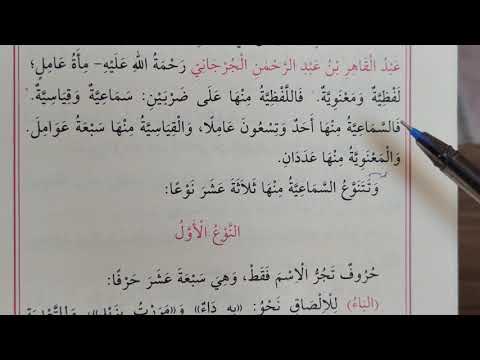 عَبْدُ الْقَاهِرِ بْنُ عَبْدِ الرَّحْمٰنِ الْجُرْجَانِيُّ رَحْمَةُ اللهِ عَلَيْهِ- مِأَةُ عَامِلٍ؛
لَفْظِيَّةٌ وَمَعْنَوِيَّةٌ. فَاللَّفْظِيَّةُ مِنْهَا عَلَى ضَرْبَيْنِ: سَمَاعِيَّةٌ وَقِيَاسِيَّةٌ.
فَالسَّمَاعِيَّةُ مِنْهَا أَحَدٌ وَتِسْعُونَ عَامِلًا، وَالْقِيَاسِيَّةُ مِنْهَا سَبْعَةُ عَوَامِلَ.
وَالْمَعْنَوِيَّةُ مِنْهَا عَدَدَانِ.
وَتَتَنَوَّعُ السَّمَاعِيَّةُ مِنْهَا ثَلَاثَةَ عَشَرَ نَوْعًا:
النَّوْعُ الْأَوَّلُ
حُرُوفٌ تَجُرُّ الْاِسْمَ فَقَطْ، وَهِيَ سَبْعَةَ عَشَرَ حَرْفًا:
(اَلْبَاءُ) لِلْإِلْصَاقِ نَحْوُ: «بِهِ دَاءٌ» وَ«مَرَرْتُ بِزَيْدٍ»، وَلِلتَّعْدِيَةِ